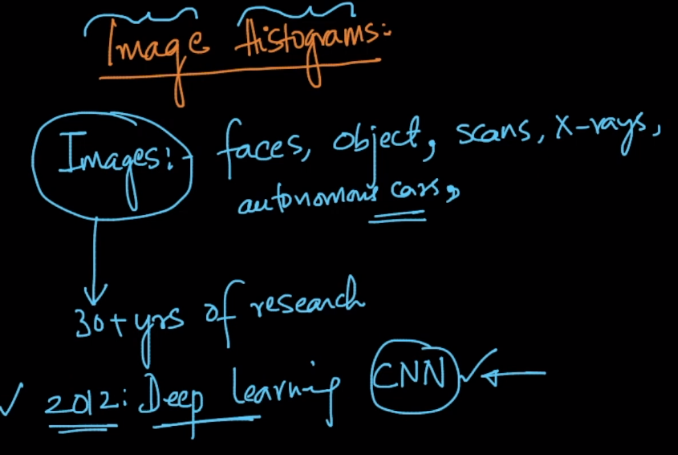 Image Histograms:
Images:- faces, object, scans, X-rays,
autonomous cars,
30+yrs of research
2012: Deep learning CNN